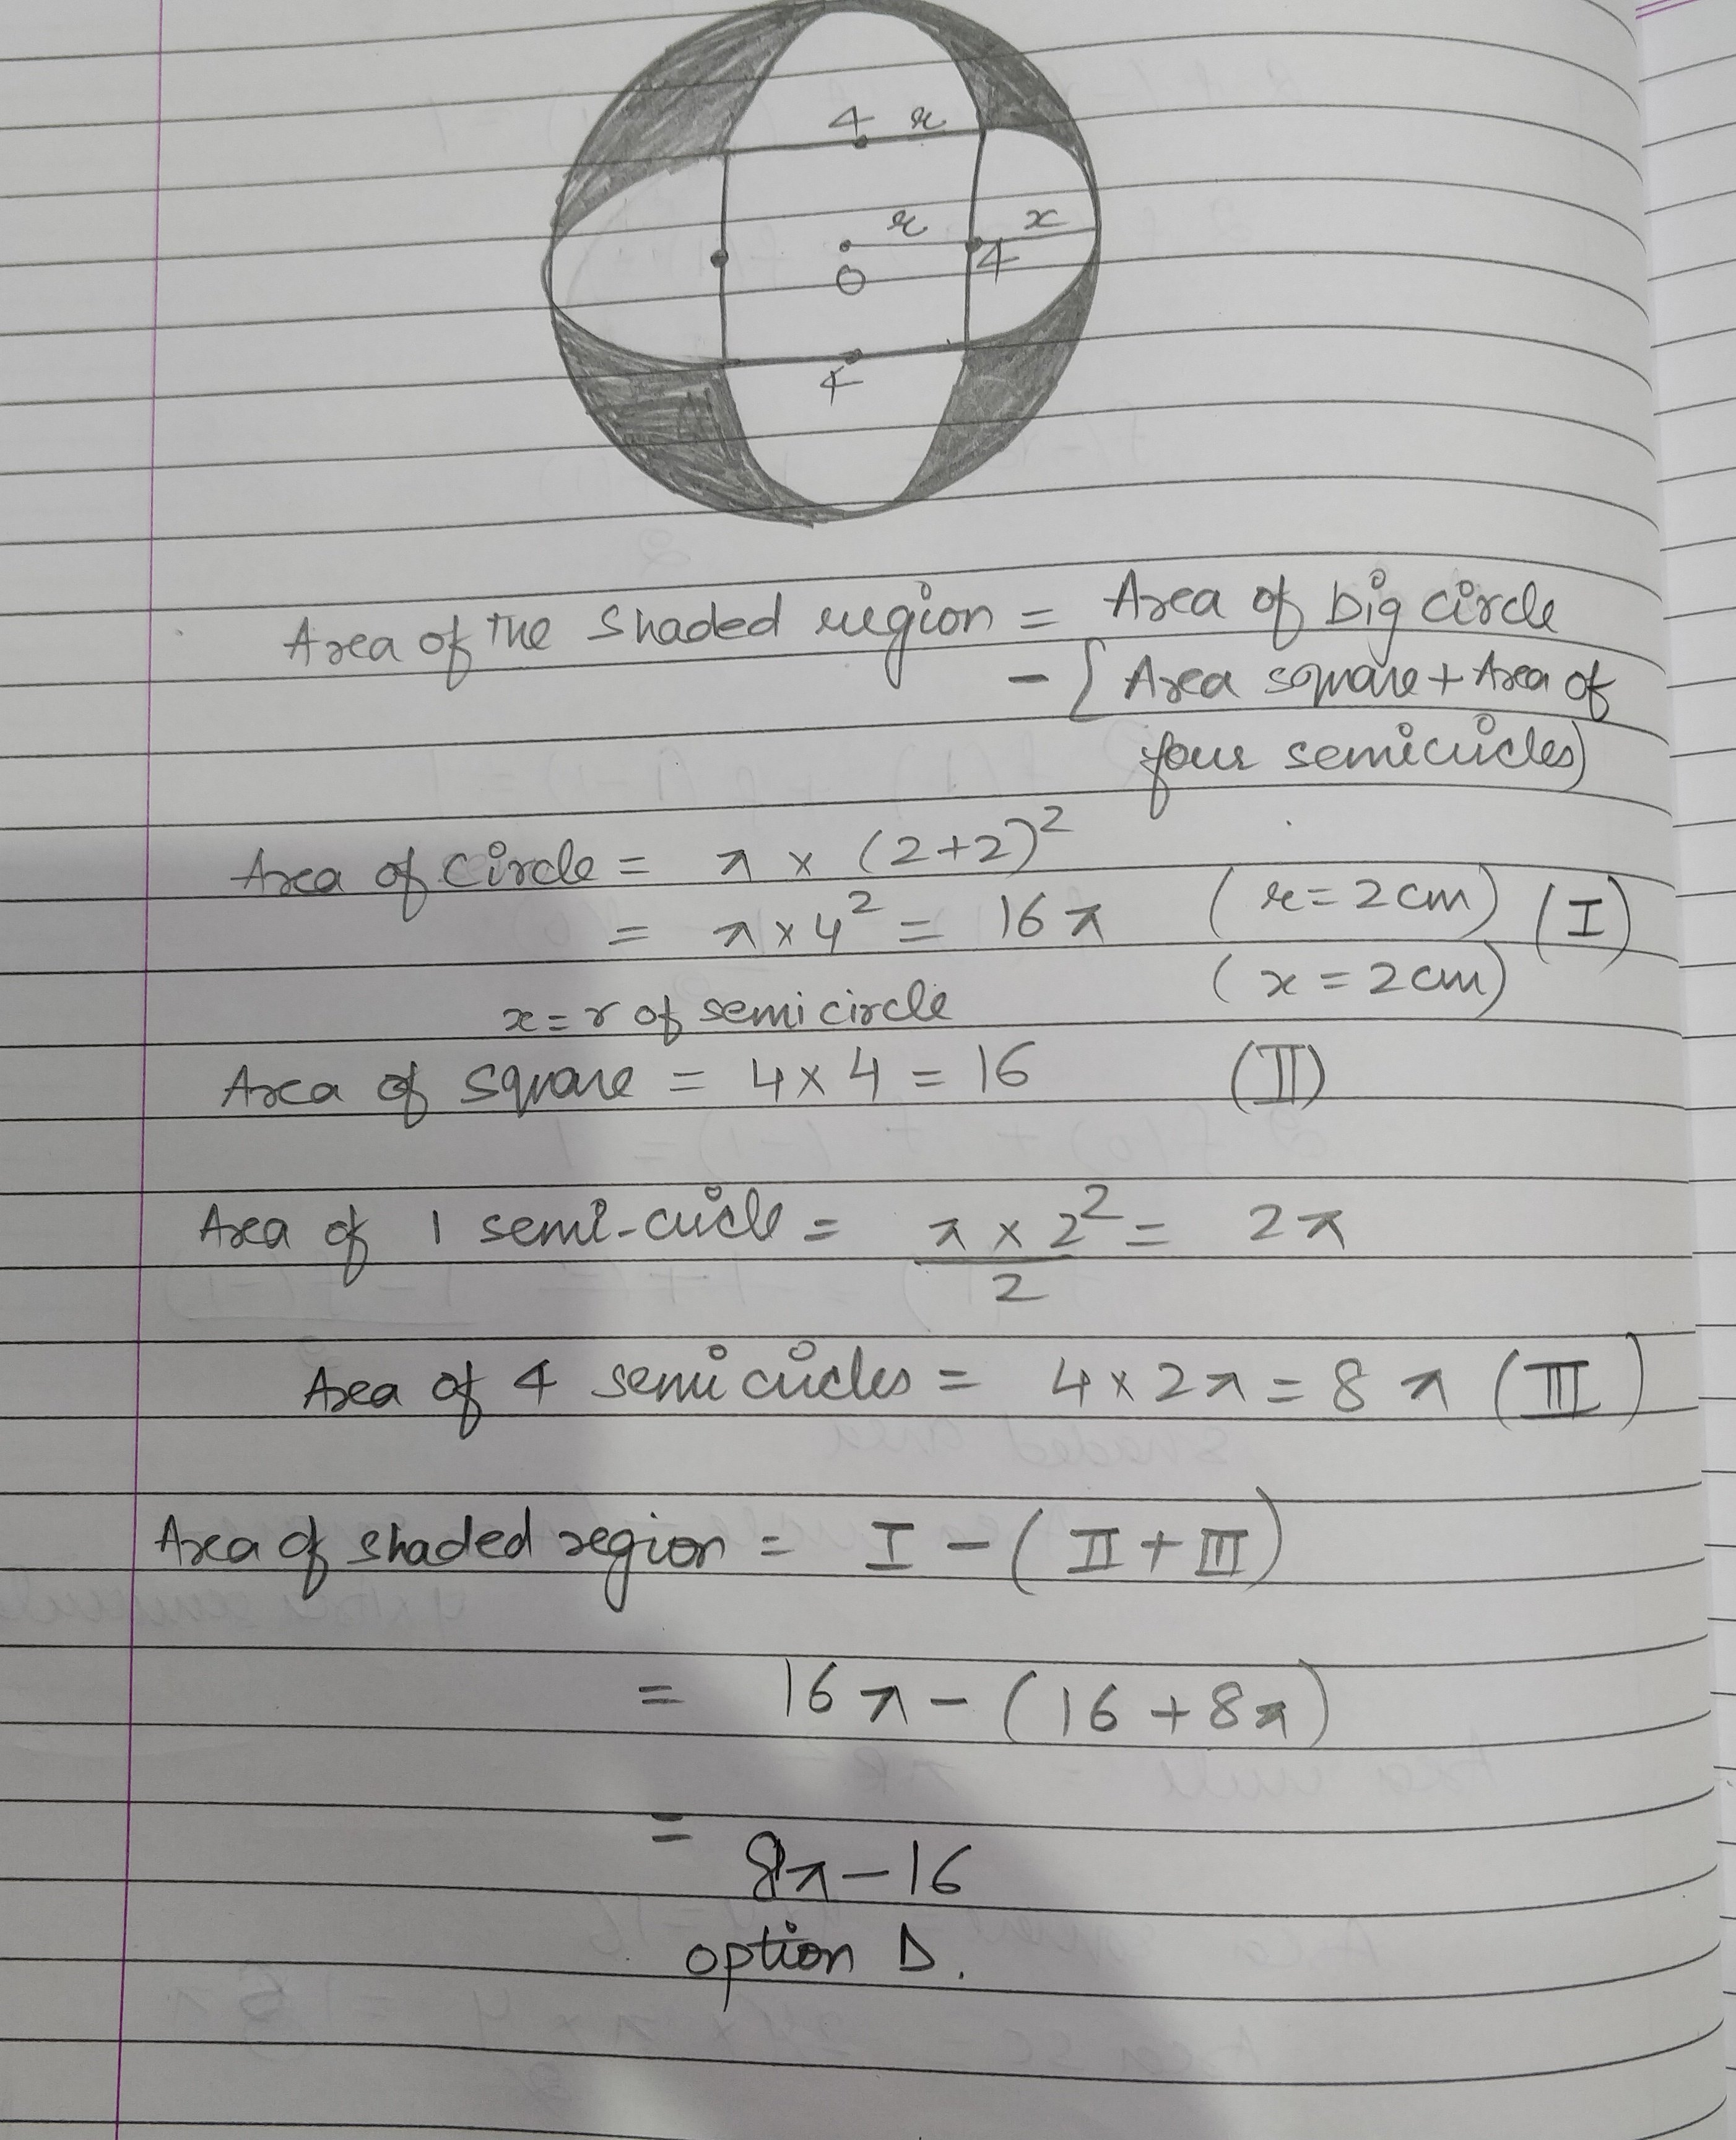 4 r
r x
4
O
4
Area of the shaded region = Area of big circle
- [Area square + Area of
four semicircles)
Area of circle = π × (2+2)²
= π × 4² = 16 π (r = 2 cm) (I)
x = r of semi circle (x = 2 cm)
Area of square = 4 × 4 = 16 (II)
Area of 1 semi-circle = π × 2² / 2 = 2π
Area of 4 semi circles = 4 × 2π = 8 π (III)
Area of shaded region = I - (II + III)
= 16 π - (16 + 8π)
= 8π - 16
option D.